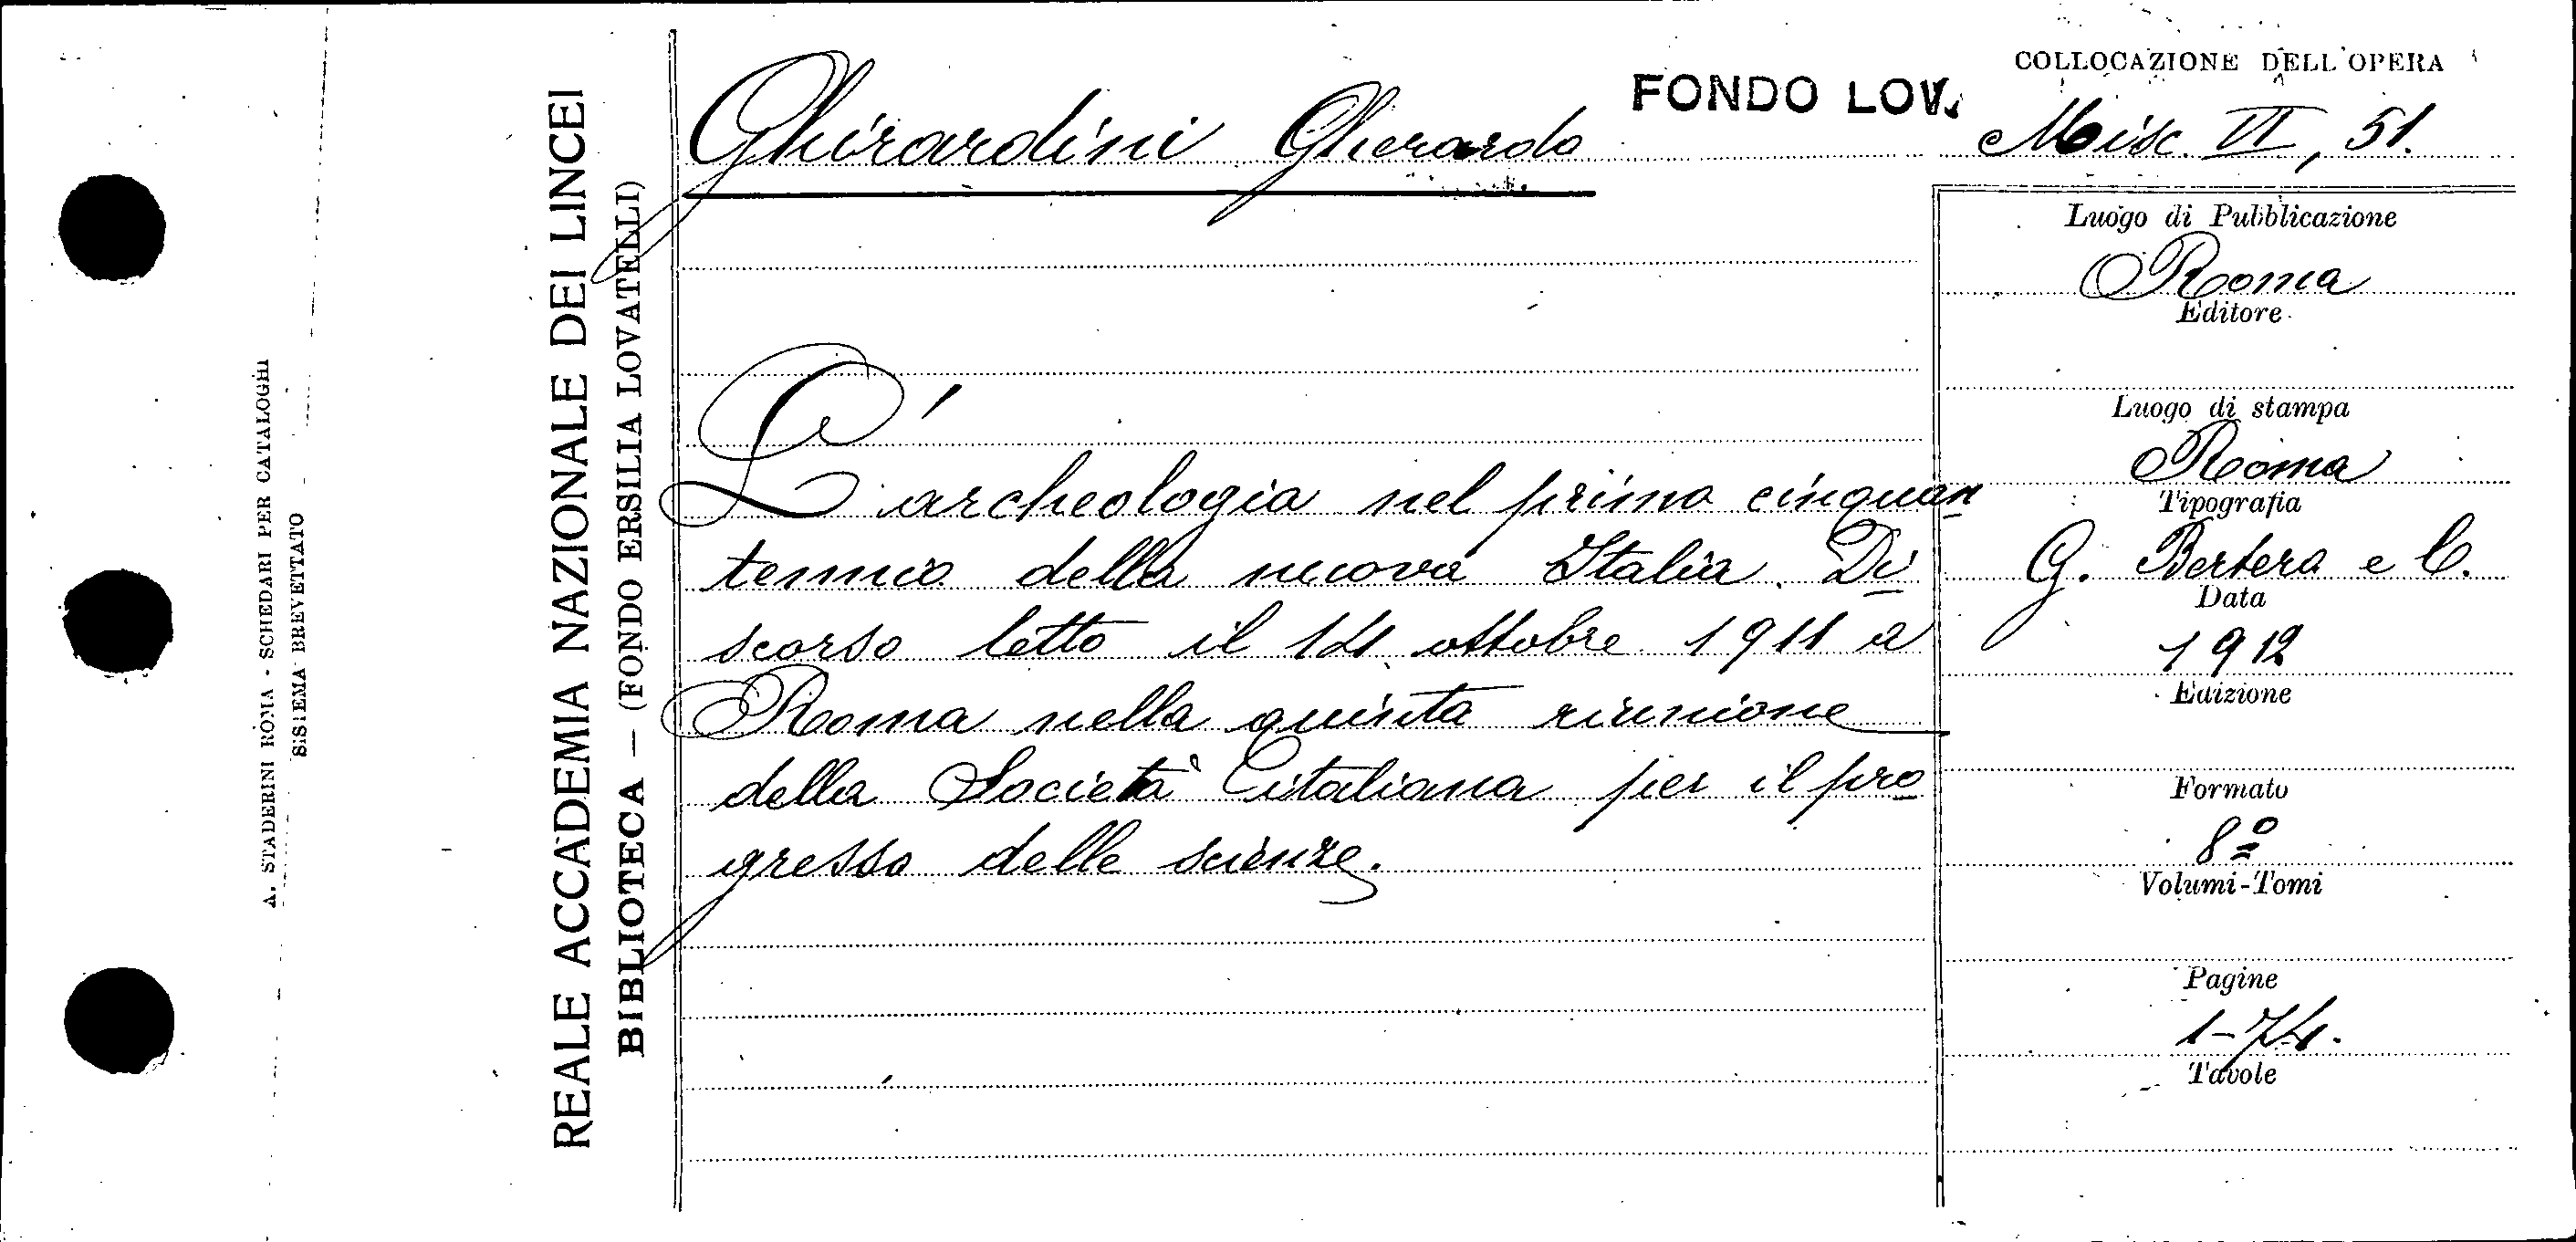 A. STADERINI ROMA - SCHEDARI PER CATALOGHI
SISTEMA BREVETTATO
REALE ACCADEMIA NAZIONALE DEI LINCEI
BIBLIOTECA — (FONDO ERSILIA LOVATELLI)
Ghirardini Gherardo
FONDO LOV.
COLLOCAZIONE DELL'OPERA
Misc. VI, 51.
L'archeologia nel primo cinquan
tennio della nuova Italia. Di
scorso letto il 14 ottobre 1911 a
Roma nella quinta riunione
della Società italiana per il pro
gresso delle scienze.
Luogo di Pubblicazione
Roma
Editore
Luogo di stampa
Roma
Tipografia
G. Bertero e C.
Data
1912
Edizione
Formato
8º
Volumi-Tomi
Pagine
1-74.
Tavole